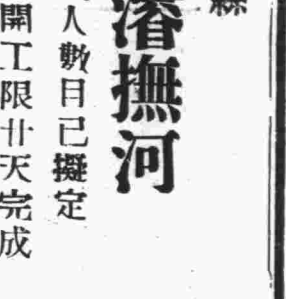 縣
濬撫河
人數目已擬定
開工限廿天完成